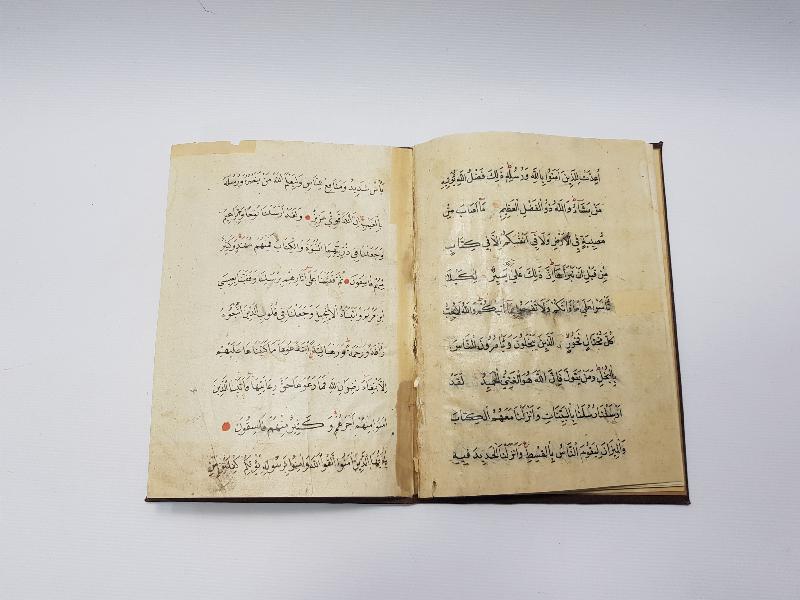 اُعِدَّتْ لِلَّذِينَ اٰمَنُوا بِاللّٰهِ وَرُسُلِهِ ذٰلِكَ فَضْلُ اللّٰهِ يُؤْتِيهِ
مَنْ يَشَاءُ وَاللّٰهُ ذُو الْفَضْلِ الْعَظِيمِ مَا اَصَابَ مِنْ
مُصِيبَةٍ فِي الْاَرْضِ وَلَا فِي اَنْفُسِكُمْ اِلَّا فِي كِتَابٍ
مِنْ قَبْلِ اَنْ نَبْرَاَهَا اِنَّ ذٰلِكَ عَلَى اللّٰهِ يَسِيرٌ لِكَيْلَا
تَأْسَوْا عَلٰى مَا فَاتَكُمْ وَلَا تَفْرَحُوا بِمَا اٰتٰيكُمْ وَاللّٰهُ لَا يُحِبُّ
كُلَّ مُخْتَالٍ فَخُورٍ الَّذِينَ يَبْخَلُونَ وَيَأْمُرُونَ النَّاسَ
بِالْبُخْلِ وَمَنْ يَتَوَلَّ فَاِنَّ اللّٰهَ هُوَ الْغَنِيُّ الْحَمِيدُ لَقَدْ
اَرْسَلْنَا رُسُلَنَا بِالْبَيِّنَاتِ وَاَنْزَلْنَا مَعَهُمُ الْكِتَابَ
وَالْمِيزَانَ لِيَقُومَ النَّاسُ بِالْقِسْطِ وَاَنْزَلْنَا الْحَدِيدَ فِيهِ
بَأْسٌ شَدِيدٌ وَمَنَافِعُ لِلنَّاسِ وَلِيَعْلَمَ اللّٰهُ مَنْ يَنْصُرُهُ وَرُسُلَهُ
بِالْغَيْبِ اِنَّ اللّٰهَ قَوِيٌّ عَزِيزٌ وَلَقَدْ اَرْسَلْنَا نُوحًا وَاِبْرٰهِيمَ
وَجَعَلْنَا فِي ذُرِّيَّتِهِمَا النُّبُوَّةَ وَالْكِتَابَ فَمِنْهُمْ مُهْتَدٍ وَكَثِيرٌ
مِنْهُمْ فَاسِقُونَ ثُمَّ قَفَّيْنَا عَلٰى اٰثَارِهِمْ بِرُسُلِنَا وَقَفَّيْنَا بِعِيسَى
ابْنِ مَرْيَمَ وَاٰتَيْنَاهُ الْاِنْجِيلَ وَجَعَلْنَا فِي قُلُوبِ الَّذِينَ اتَّبَعُوهُ
رَأْفَةً وَرَحْمَةً وَرَهْبَانِيَّةً ابْتَدَعُوهَا مَا كَتَبْنَاهَا عَلَيْهِمْ
اِلَّا ابْتِغَاءَ رِضْوَانِ اللّٰهِ فَمَا رَعَوْهَا حَقَّ رِعَايَتِهَا فَاٰتَيْنَا الَّذِينَ
اٰمَنُوا مِنْهُمْ اَجْرَهُمْ وَكَثِيرٌ مِنْهُمْ فَاسِقُونَ
يَا اَيُّهَا الَّذِينَ اٰمَنُوا اتَّقُوا اللّٰهَ وَاٰمِنُوا بِرَسُولِهِ يُؤْتِكُمْ كِفْلَيْنِ مِنْ